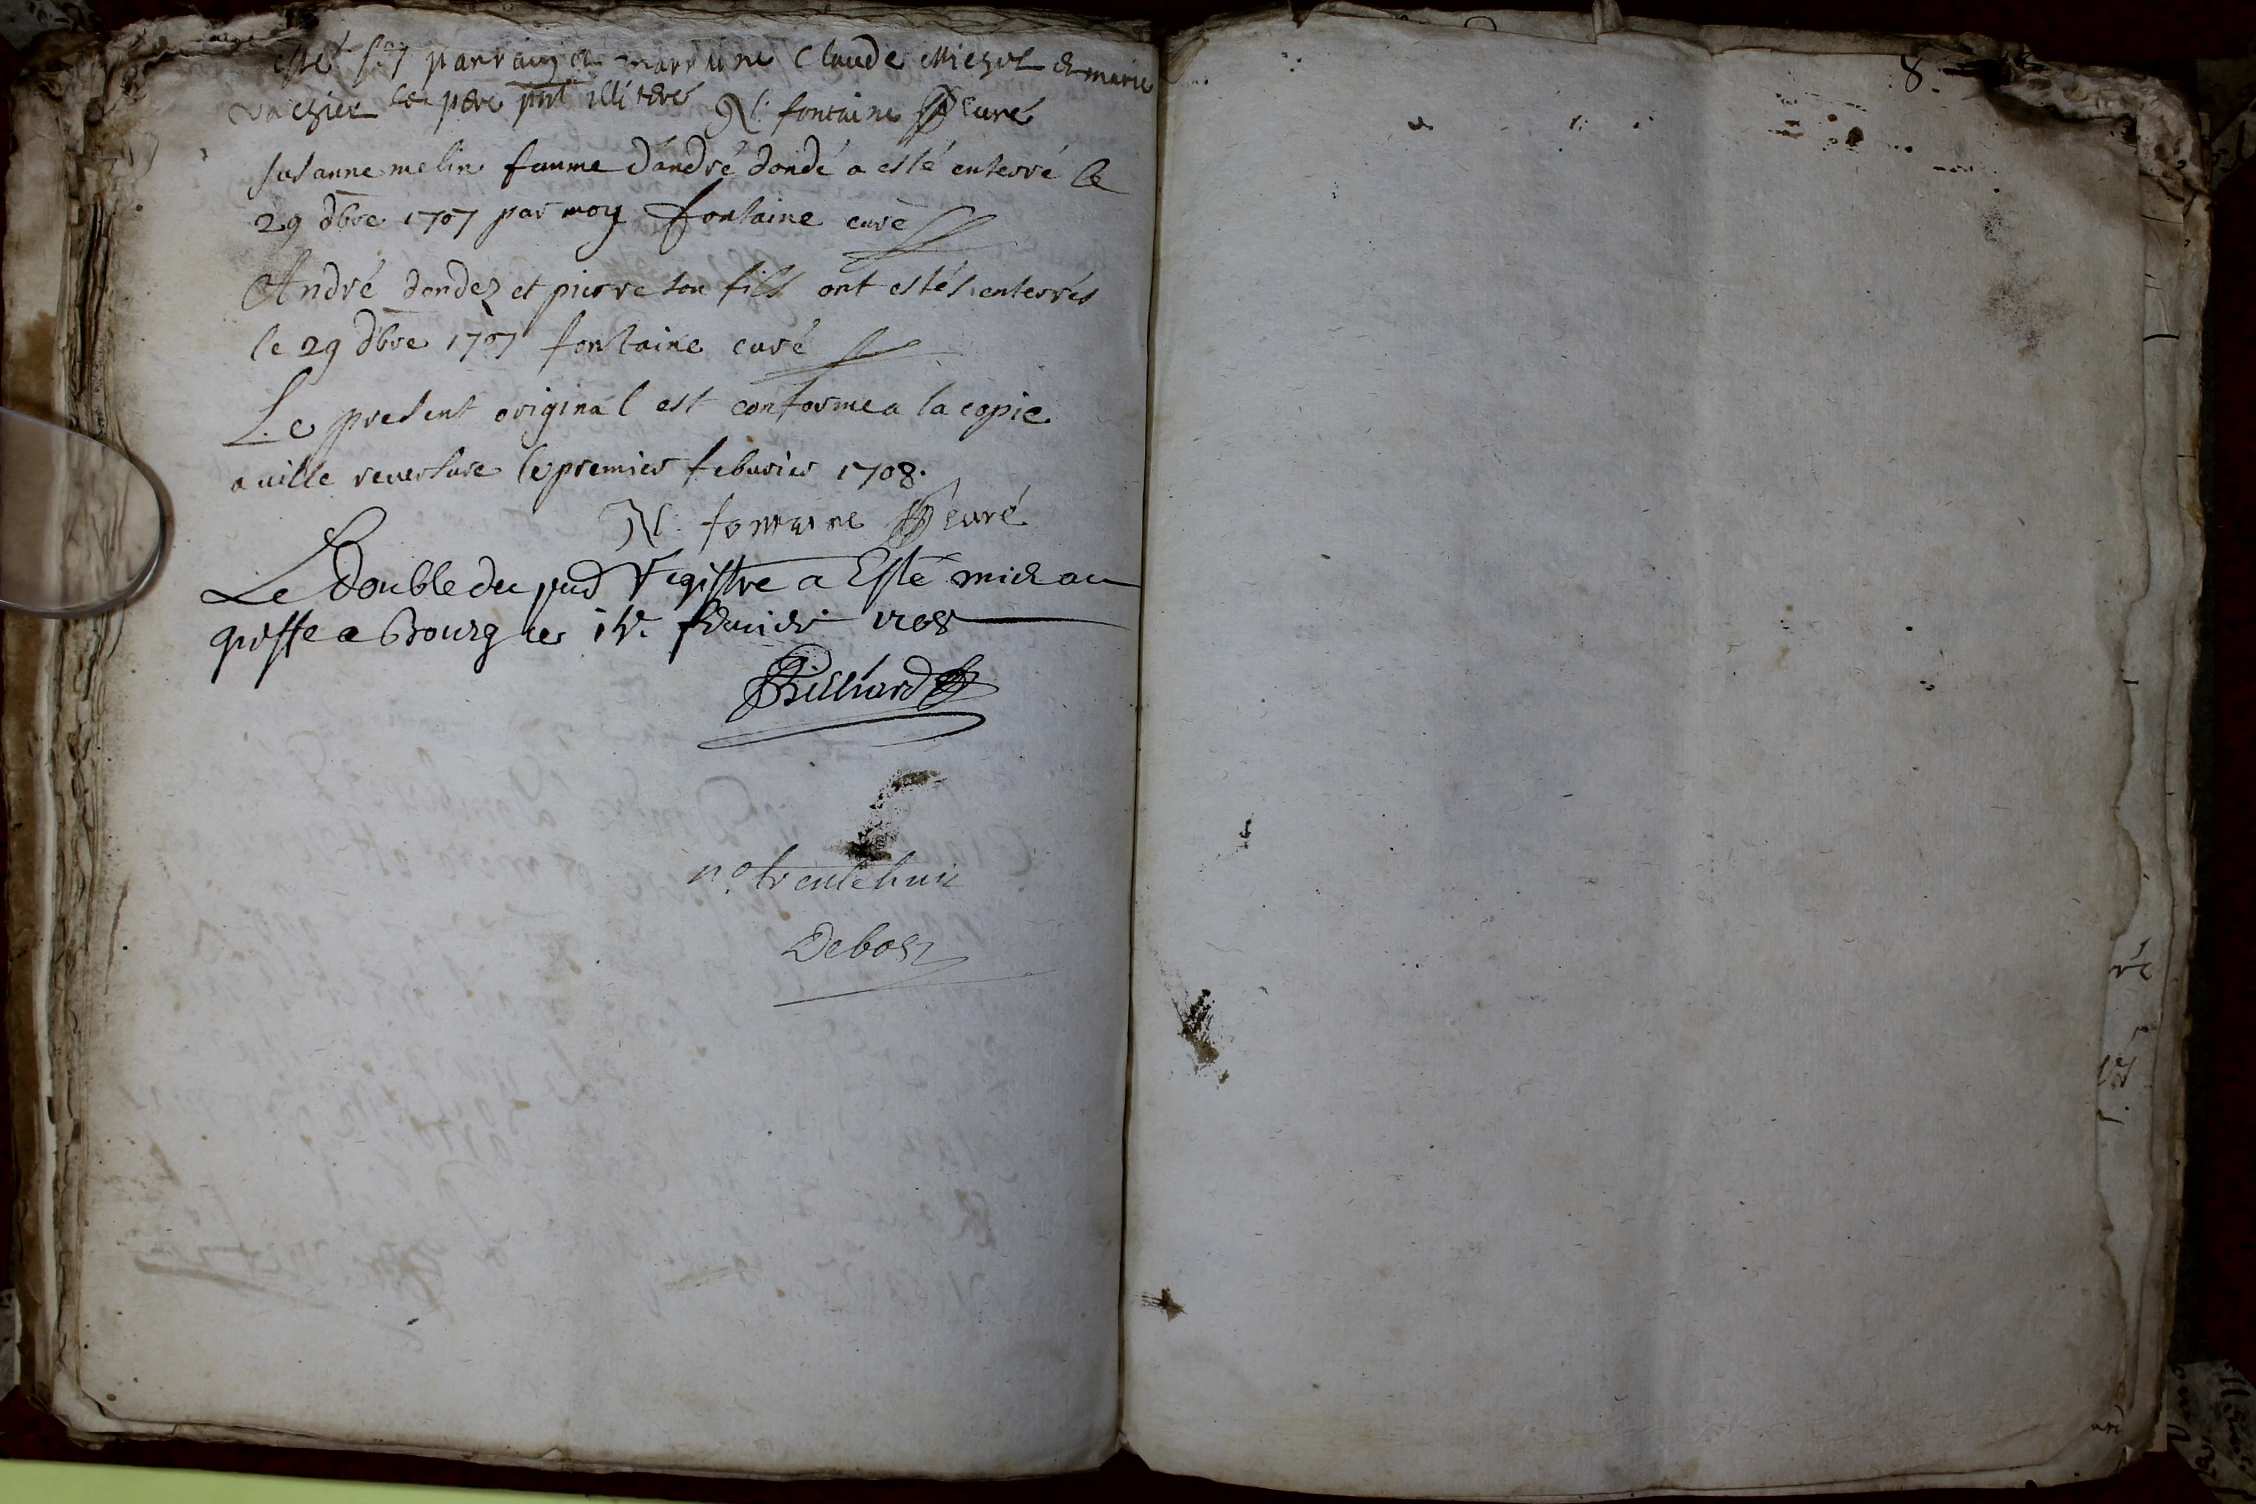 esté parrain et marraine Claude Michel et marie
vachier le pere pnt illiteré N. fontaine curé
susanne melin famme d'andré dondé a esté enterré le
29 dbre 1707 par moy fontaine curé
André dondez et pierre son fils ont estés enterrés
le 29 dbre 1707 fontaine curé
Le present original est conforme a la copie
a uille reuersure le premier feburier 1708.
N. fontaine curé
Le double du pnd registre a Esté mis au
greffe a Bourg le feurier 1708
Billiard
n.o trente huit
Debost
8.